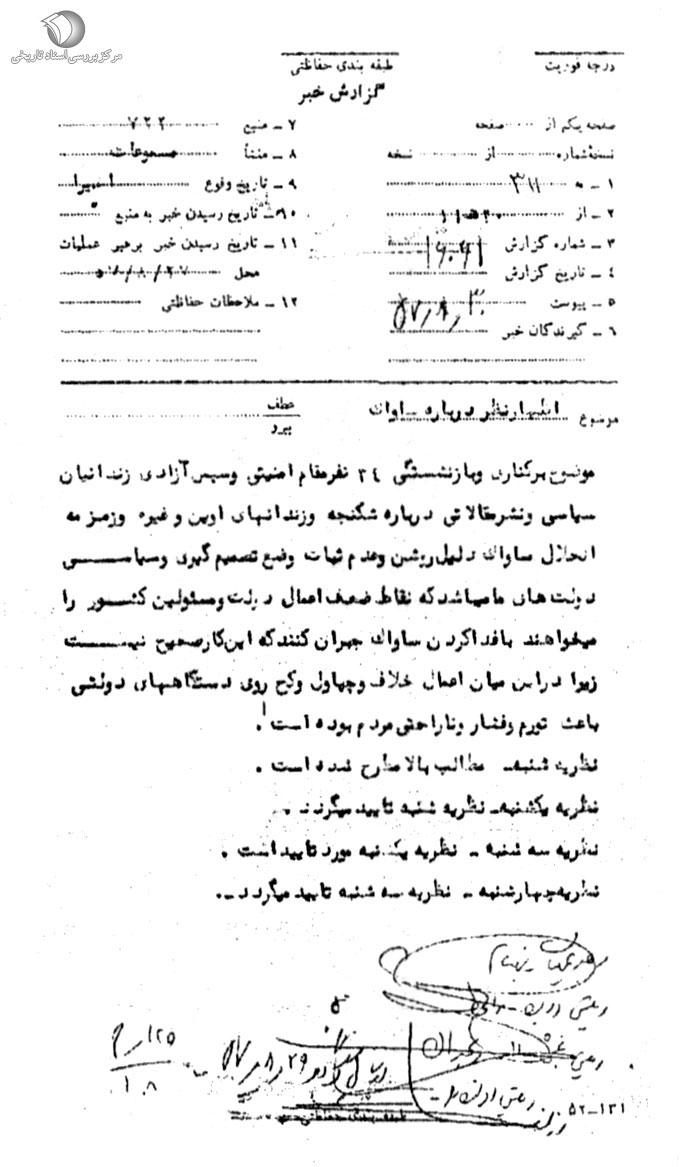 مرکز بررسی اسناد تاریخی
درجه فوریت
طبقه بندی حفاظتی
گزارش خبر
صفحه یکم از ...... صفحه
نسخه شماره ........ از ........ نسخه
۱ ـ به ۳۱۱
۲ ـ از ۱۱ه۲۰
۳ ـ شماره گزارش
۴ ـ تاریخ گزارش
۵ ـ پیوست ۵۷٫۸٫۳۰
۶ ـ گیرندگان خبر
۷ ـ منبع ۷۲۲
۸ ـ منشأ مسموعات
۹ ـ تاریخ وقوع اخیرا
۱۰ ـ تاریخ رسیدن خبر به منبع
۱۱ ـ تاریخ رسیدن خبر برهبر عملیات
محل ۵۷/۸/۲۷
۱۲ ـ ملاحظات حفاظتی
موضوع اظهارنظر درباره ساواك
عطف
پیرو
موضوع برکناری وبازنشستگی ۳۴ نفر مقام امنیتی وسپس آزادی زندانیان
سیاسی ونشر مقالاتی درباره شکنجه وزندانهای اوین وغیره وزمزمه
انحلال ساواك دلیل روشن وعدم ثبات وضع تصمیم گیری وسیاسی
دولت های ما میباشد که نقاط ضعف اعمال دولت ومسئولین کشور را
میخواهند بافدا کردن ساواك جبران کنند که این کار صحیح نیست
زیرا دراین میان اعمال خلاف وچپاول وکج روی دستگاههای دولتی
باعث تورم وفشار وناراحتی مردم بوده است .
نظریه شنبه ـ مطالب بالا مطرح شده است .
نظریه یکشنبه ـ نظریه شنبه تایید میگردد .
نظریه سه شنبه ـ نظریه یکشنبه مورد تایید است .
نظریه چهارشنبه ـ نظریه سه شنبه تایید میگردد .
۱۲۵
۱۰۸
طبقه بندی حفاظتی
۵۲-۱۳۱